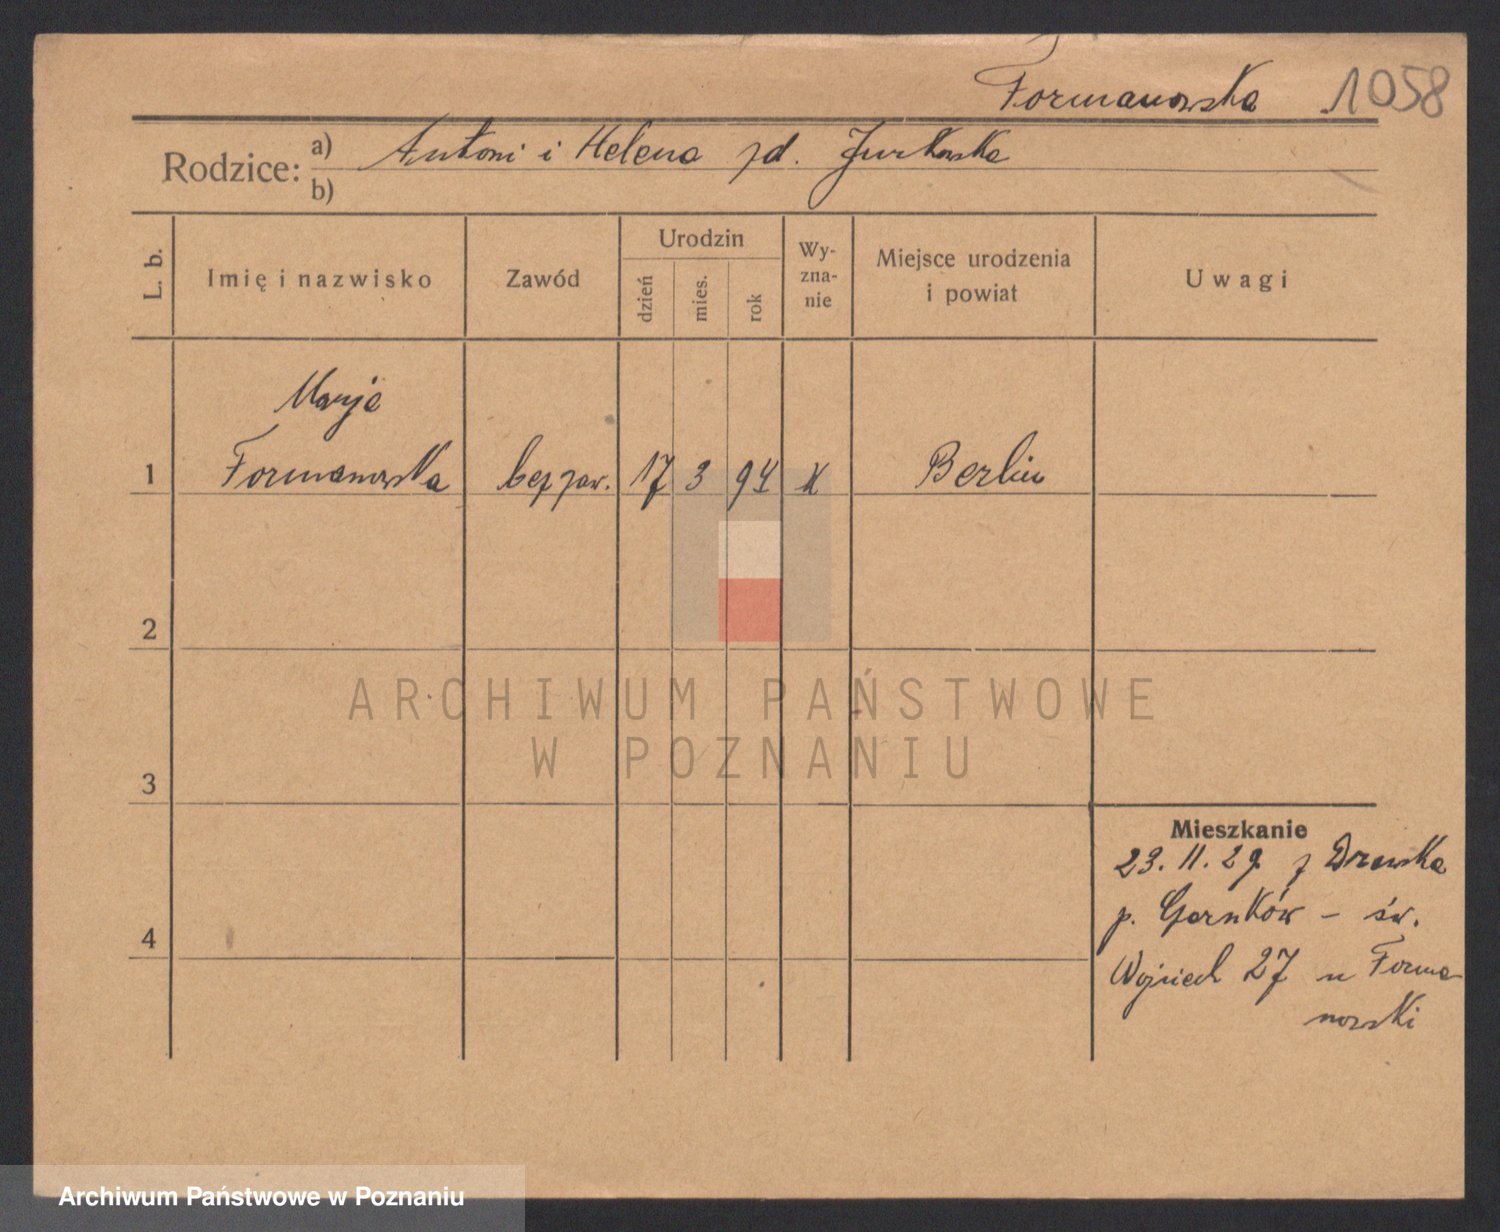 Formanowska 1058
Rodzice: a) Antoni i Helena zd. Jurkowska
b)
L. b. Imię i nazwisko Zawód Urodzin dzień mies. rok Wyznanie Miejsce urodzenia i powiat Uwagi
Marja
1 Formanowska bez zaw. 17 3 94 K Berlin
2
ARCHIWUM PAŃSTWOWE
W POZNANIU
3
Mieszkanie
23. 11. 29. z Drawska
p. Czarnków – św.
4
Wojciech 27 u Forma-
nowski
Archiwum Państwowe w Poznaniu